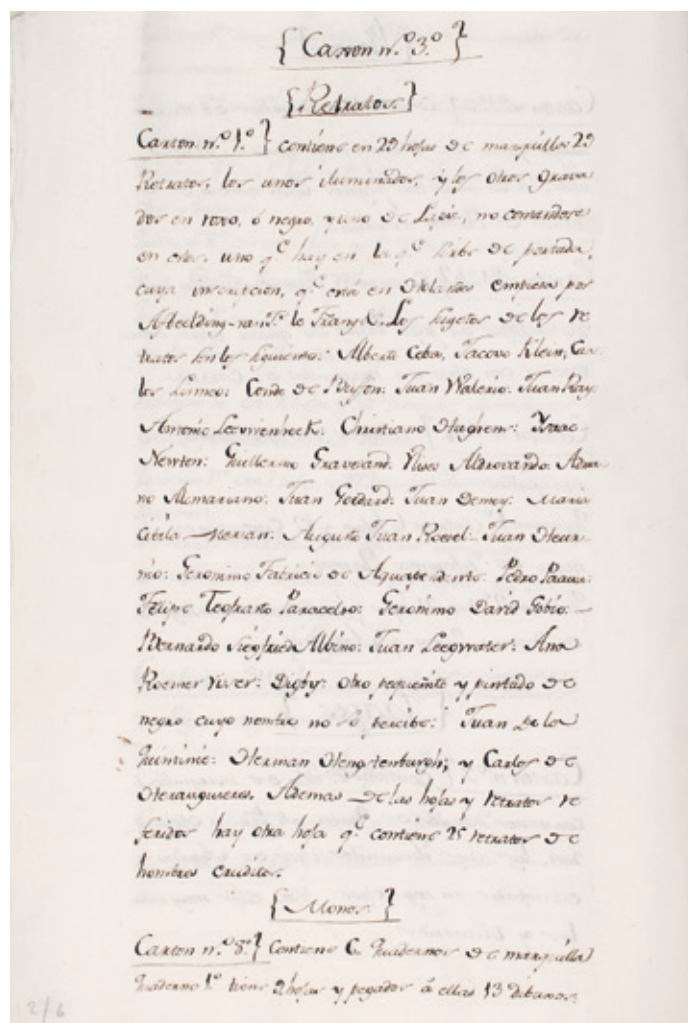 {Caxon n.º 3.º}
{Retratos.}
Carton n.º 1.º} contiene en 29 hojas de marquilla 29
Retratos, los unos iluminados, y los otros grava
dos en roxo, ó negro, y uno de Lapiz, no contandose
en estos uno q.e hay en la q.e sirbe de portada,
cuya inscripcion, q.e está en Olandes empieza por
Afbeelding-van le Los sugetos de los re
tratos son los siguientes: Alberto Ceba, Jacovo Klein, Car
los Linneo: Conde de Bufon: Juan Walerio: Juan Ray
Antonio Leeuvenheck: Christiano Hughens: Ysaac
Newton: Guillermo Gravesand: Ulises Aldrovando: Adria
no Juan Goedard: Juan Demey: Maria
Civila Merian: Augusto Juan Roesel: Juan Heur
nio: Geronimo Fabricio de Aquapendente: Pedro Paauw:
Felipe Teofrasto Paracelso: Geronimo David Gobio:
Bernardo Siegfried Albino: Juan Leegwater: Ana
Roemer Viser: Digby: otro pequeñito y pintado de
negro cuyo nombre no se percibe: Juan de la
Quintinie: Herman Hengstenburgh; y Carlos de
Herauguieres. Ademas de las hojas y retratos re
feridos hay otra hoja q.e contiene 25 retratos de
hombres eruditos.
{Monos.}
Carton n.º 8.º} Contiene 6 Quadernos de marquilla
Quaderno 1.º tiene 2 hojas y pegados á ellas 13 dibuxos:
2/6